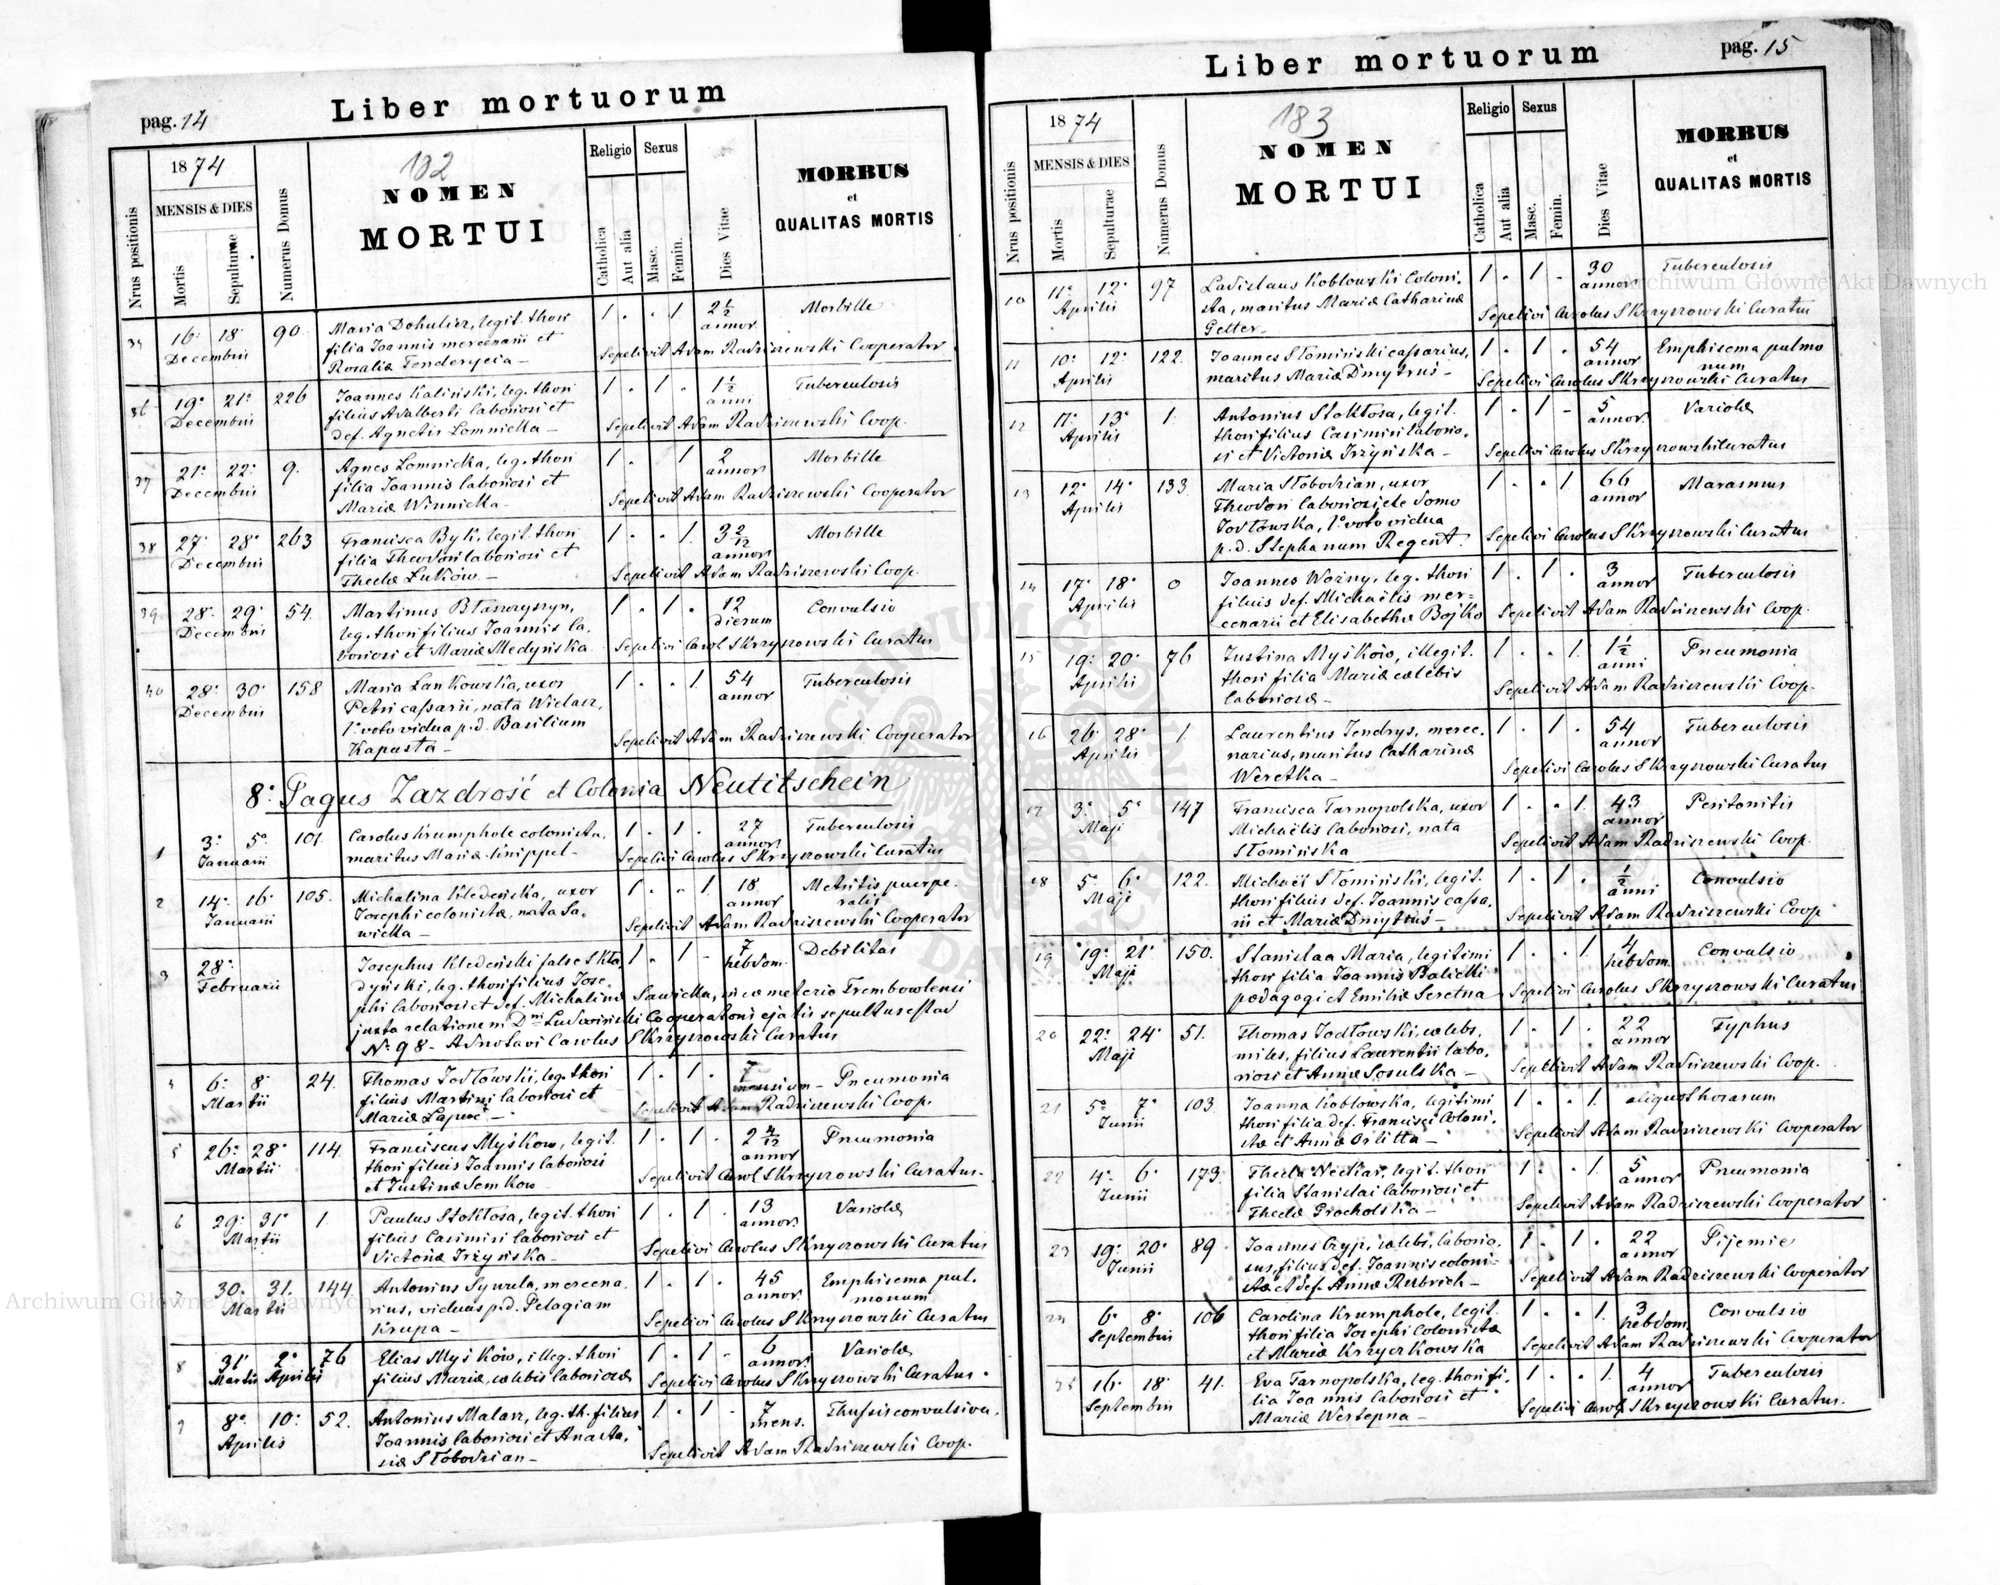 pag. 14
Liber mortuorum
1874
MENSIS & DIES
Nrus positionis
Mortis
Sepulturæ
Numerus Domus
182
NOMEN
MORTUI
Religio
Sexus
Catholica
Aut alia
Masc.
Femin.
Dies Vitae
MORBUS
et
QUALITAS MORTIS
35 16. 18. 90. Maria Dohulier, legit. thori 1 . . 1 2 1/2 Morbille
Decembris filia Joannis mercenarii et annor.
Rosaliæ Tenderycia — Sepelivit Adam Radziszewski Cooperator
36 19. 21. 226 Joannes Kaliński, leg. thori 1 . 1 . 1 1/2 Tuberculosis
Decembris filius Adalberti laboriosi et anni
def. Agnetis Lomnicka — Sepelivit Adam Radziszewski Coop.
37 21. 22. 9. Agnes Lomnicka, leg. thori 1 . 1 2 Morbille
Decembris filia Joannis laboriosi et annor.
Mariæ Winnicka — Sepelivit Adam Radziszewski Cooperator
38 27. 28. 263 Francisca Byk, legit. thori 1 . . 1. 3 2/12 Morbille
Decembris filia Theodori laboriosi et annor.
Theclæ Żuków — Sepelivit Adam Radziszewski Coop.
39 28. 29. 54. Martinus Błaszczyszyn, 1 . 1 . 12 Convulsio
Decembris leg. thori filius Joannis la- dierum
boriosi et Mariæ Medyńska Sepelivi Carol Skrzyszowski Curatus
40 28. 30. 158 Maria Lankowska, uxor 1 . . 1. 54 Tuberculosis
Decembris Petri cassarii, nata Wielasz, annor
1o voto vidua p. d. Basilium
Kapusta — Sepelivit Adam Radziszewski Cooperator
8. Pagus Zazdrość et Colonia Neutitschein
1 3. 5. 101. Carolus Krumphole colonista, 1 . 1 . 27 Tuberculosis
Januarii maritus Mariæ Knippel — annor.
Sepelivi Carolus Skrzyszowski Curatus
2 14. 16. 105. Michalina Kledeńska, uxor 1 . . 1. 18 Metritis puerpe-
Januarii Josephi colonistæ, nata Sa- annor ralis
wicka — Sepelivit Adam Radziszewski Cooperator
3 28. Josephus Kledeński false Skła- 1 . 1 - 7 Debilitas
Februarii dyński, leg. thori filius Jose- hebdom.
phi laboriosi et def. Michalinæ Sawicka, in cœmeterio Trembowlensi
juxta relationem Dni Ludwiński Cooperatoris ejatis sepultus est ad
No 98 — Adnotavi Carolus Skrzyszowski Curatus
4 6. 8. 24. Thomas Jodłowski, leg. thori 1 . 1 . 7 Pneumonia
Martii filius Martini laboriosi et mensium —
Mariæ Łapuć — Sepelivit Adam Radziszewski Coop.
5 26. 28. 114. Franciscus Myśkow, legit. 1 . 1 . 2 4/12 Pneumonia
Martii thori filius Joannis laboriosi annor
et Justinæ Semkow — Sepelivit Carol Skrzyszowski Curatus.
6 29. 31. 1. Paulus Stokłosa, legit. thori 1 . 1 . 13 Variolæ
Martii filius Casimiri laboriosi et annor.
Victoriæ Irżyńska — Sepelivi Carolus Skrzyszowski Curatus
7 30. 31. 144. Antonius Sywula, mercena- 1 . 1 . 45 Emphisema pul-
Martii rius, viduus p. d. Pelagiam annor. monum
Krupa — Sepelivi Carolus Skrzyszowski Curatus
8 31. 2. 76 Elias Myśków, illeg. thori 1 . 1 . 6 Variolæ
Martii Aprilis filius Mariæ, cœlebis laboriosæ annor.
Sepelivi Carolus Skrzyszowski Curatus.
9 8. 10. 52. Antonius Malarz, leg. th. filius 1 . 1 . 7 Thussis convulsiva.
Aprilis Joannis laboriosi et Anasta- mens.
siæ Słobodzian — Sepelivit Adam Radziszewski Coop.
Liber mortuorum
pag. 15
1874
MENSIS & DIES
Nrus positionis
Mortis
Sepulturae
Numerus Domus
183
NOMEN
MORTUI
Religio
Sexus
Catholica
Aut alia
Masc.
Femin.
Dies Vitae
MORBUS
et
QUALITAS MORTIS
10 11. 12. 97 Ladislaus Koblowski Coloni- 1 . 1 . 30 Tuberculosis
Aprilis sta, maritus Mariæ Catharinæ annor.
Petter — Sepelivi Carolus Skrzyszowski Curatus
11 10. 12. 122. Joannes Słomiński cassarius, 1 . 1 . 54 Emphisema pulmo
Aprilis maritus Mariæ Dmytruś — annor num
Sepelivi Carolus Skrzyszowski Curatus
12 11. 13. 1. Antonius Stokłosa, legit. 1 . 1 - 5 Variolæ
Aprilis thori filius Casimiri laborio- annor.
si et Victoriæ Irżyńska — Sepelivi Carolus Skrzyszowski Curatus
13 12. 14. 133. Maria Słobodzian, uxor 1 . . 1 66 Marasmus
Aprilis Theodori laboriosi de domo annor
Jodłowska, 1o voto vidua
p. d. Stephanum Regent. Sepelivi Carolus Skrzyszowski Curatus
14 17. 18. 0 Joannes Woźny, leg. thori 1 . 1 . 3 Tuberculosis
Aprilis filius def. Michaëlis mer- annor
cenarii et Elisabethæ Bojko Sepelivit Adam Radziszewski Coop.
15 19. 20. 76 Justina Myśków, illegit. 1 . . 1. 1 1/2 Pneumonia
Aprilis thori filia Mariæ cœlebis anni
laboriosæ — Sepelivit Adam Radziszewski Coop.
16 26. 28. 1 Laurentius Jendrys, merce- 1 . 1 . 54 Tuberculosis
Aprilis narius, maritus Catharinæ annor
Weretka — Sepelivi Carolus Skrzyszowski Curatus
17 3. 5. 147 Francisca Tarnopolska, uxor 1 . . 1. 43 Peritonitis
Maji Michaëlis laboriosi, nata annor
Słomińska Sepelivit Adam Radziszewski Coop.
18 5. 6. 122. Michaël Słomiński, legit. 1 . 1 . 1/2 Convulsio
Maji thori filius def. Joannis cassa- anni
rii et Mariæ Dmytruś — Sepelivit Adam Radziszewski Coop
19 19. 21. 150. Stanislaa Maria, legitimi 1 . . 1. 4 Convulsio
Maji thori filia Joannis Balicki hebdom.
pædagogi et Emiliæ Seretna Sepelivi Carolus Skrzyszowski Curatus
20 22. 24. 51. Thomas Jodłowski, cœlebs, 1 . 1 . 22 Typhus
Maji miles, filius Laurentii labo- annor
riosi et Annæ Sosulska — Sepelivit Adam Radziszewski Coop.
21 5. 7. 103. Joanna Koblowska, legitimi 1 . . 1. aliquot horarum
Junii thori filia def. Francisci Coloni-
stæ et Annæ Orlitta — Sepelivit Adam Radziszewski Cooperator
22 4. 6. 173. Thecla Neckar, legit. thori 1 . . 1. 5 Pneumonia
Junii filia Stanislai laboriosi et annor
Theclæ Procholska — Sepelivit Adam Radziszewski Cooperator
23 19. 20. 89 Joannes Czyp, cœlebs, laborio- 1 . 1 . 22 Pijemie
Junii sus, filius def. Joannis coloni- annor
stæ et def. Annæ Rubrich — Sepelivit Adam Radziszewski Cooperator
24 6. 8. 106 Carolina Krumphole, legit. 1 . . 1. 3 Convulsio
Septembris thori filia Josephi Colonistæ hebdom.
et Mariæ Krzyczkowska Sepelivit Adam Radziszewski Cooperator
25 16. 18. 41. Eva Tarnopolska, leg. thori fi- 1 . . 1. 4 Tuberculosis
Septembris lia Joannis laboriosi et annor
Mariæ Wertepna — Sepelivi Carol Skrzyszowski Curatus.
Archiwum Główne Akt Dawnych
Archiwum Główne Akt Dawnych
ARCHIWUM GŁÓWNE AKT DAWNYCH